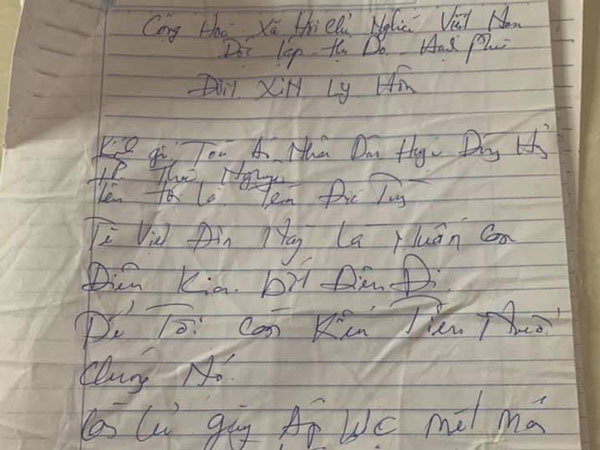 Cộng Hoà Xã Hội Chủ Nghĩa Việt Nam
Độc lập - Tự Do - Hạnh Phúc
Đơn Xin Ly Hôn
Kính gửi Toà Án Nhân Dân Huyện Đồng Hỷ
Thái Nguyên
Tên Tôi là
Tôi Viết Đơn Này Là Muốn Con
Điên Kia Bớt Điên Đi
Để Tôi Còn Kiếm Tiền Nuôi
Chúng Nó.
Còn Cứ gây Áp Lực mệt mỏi